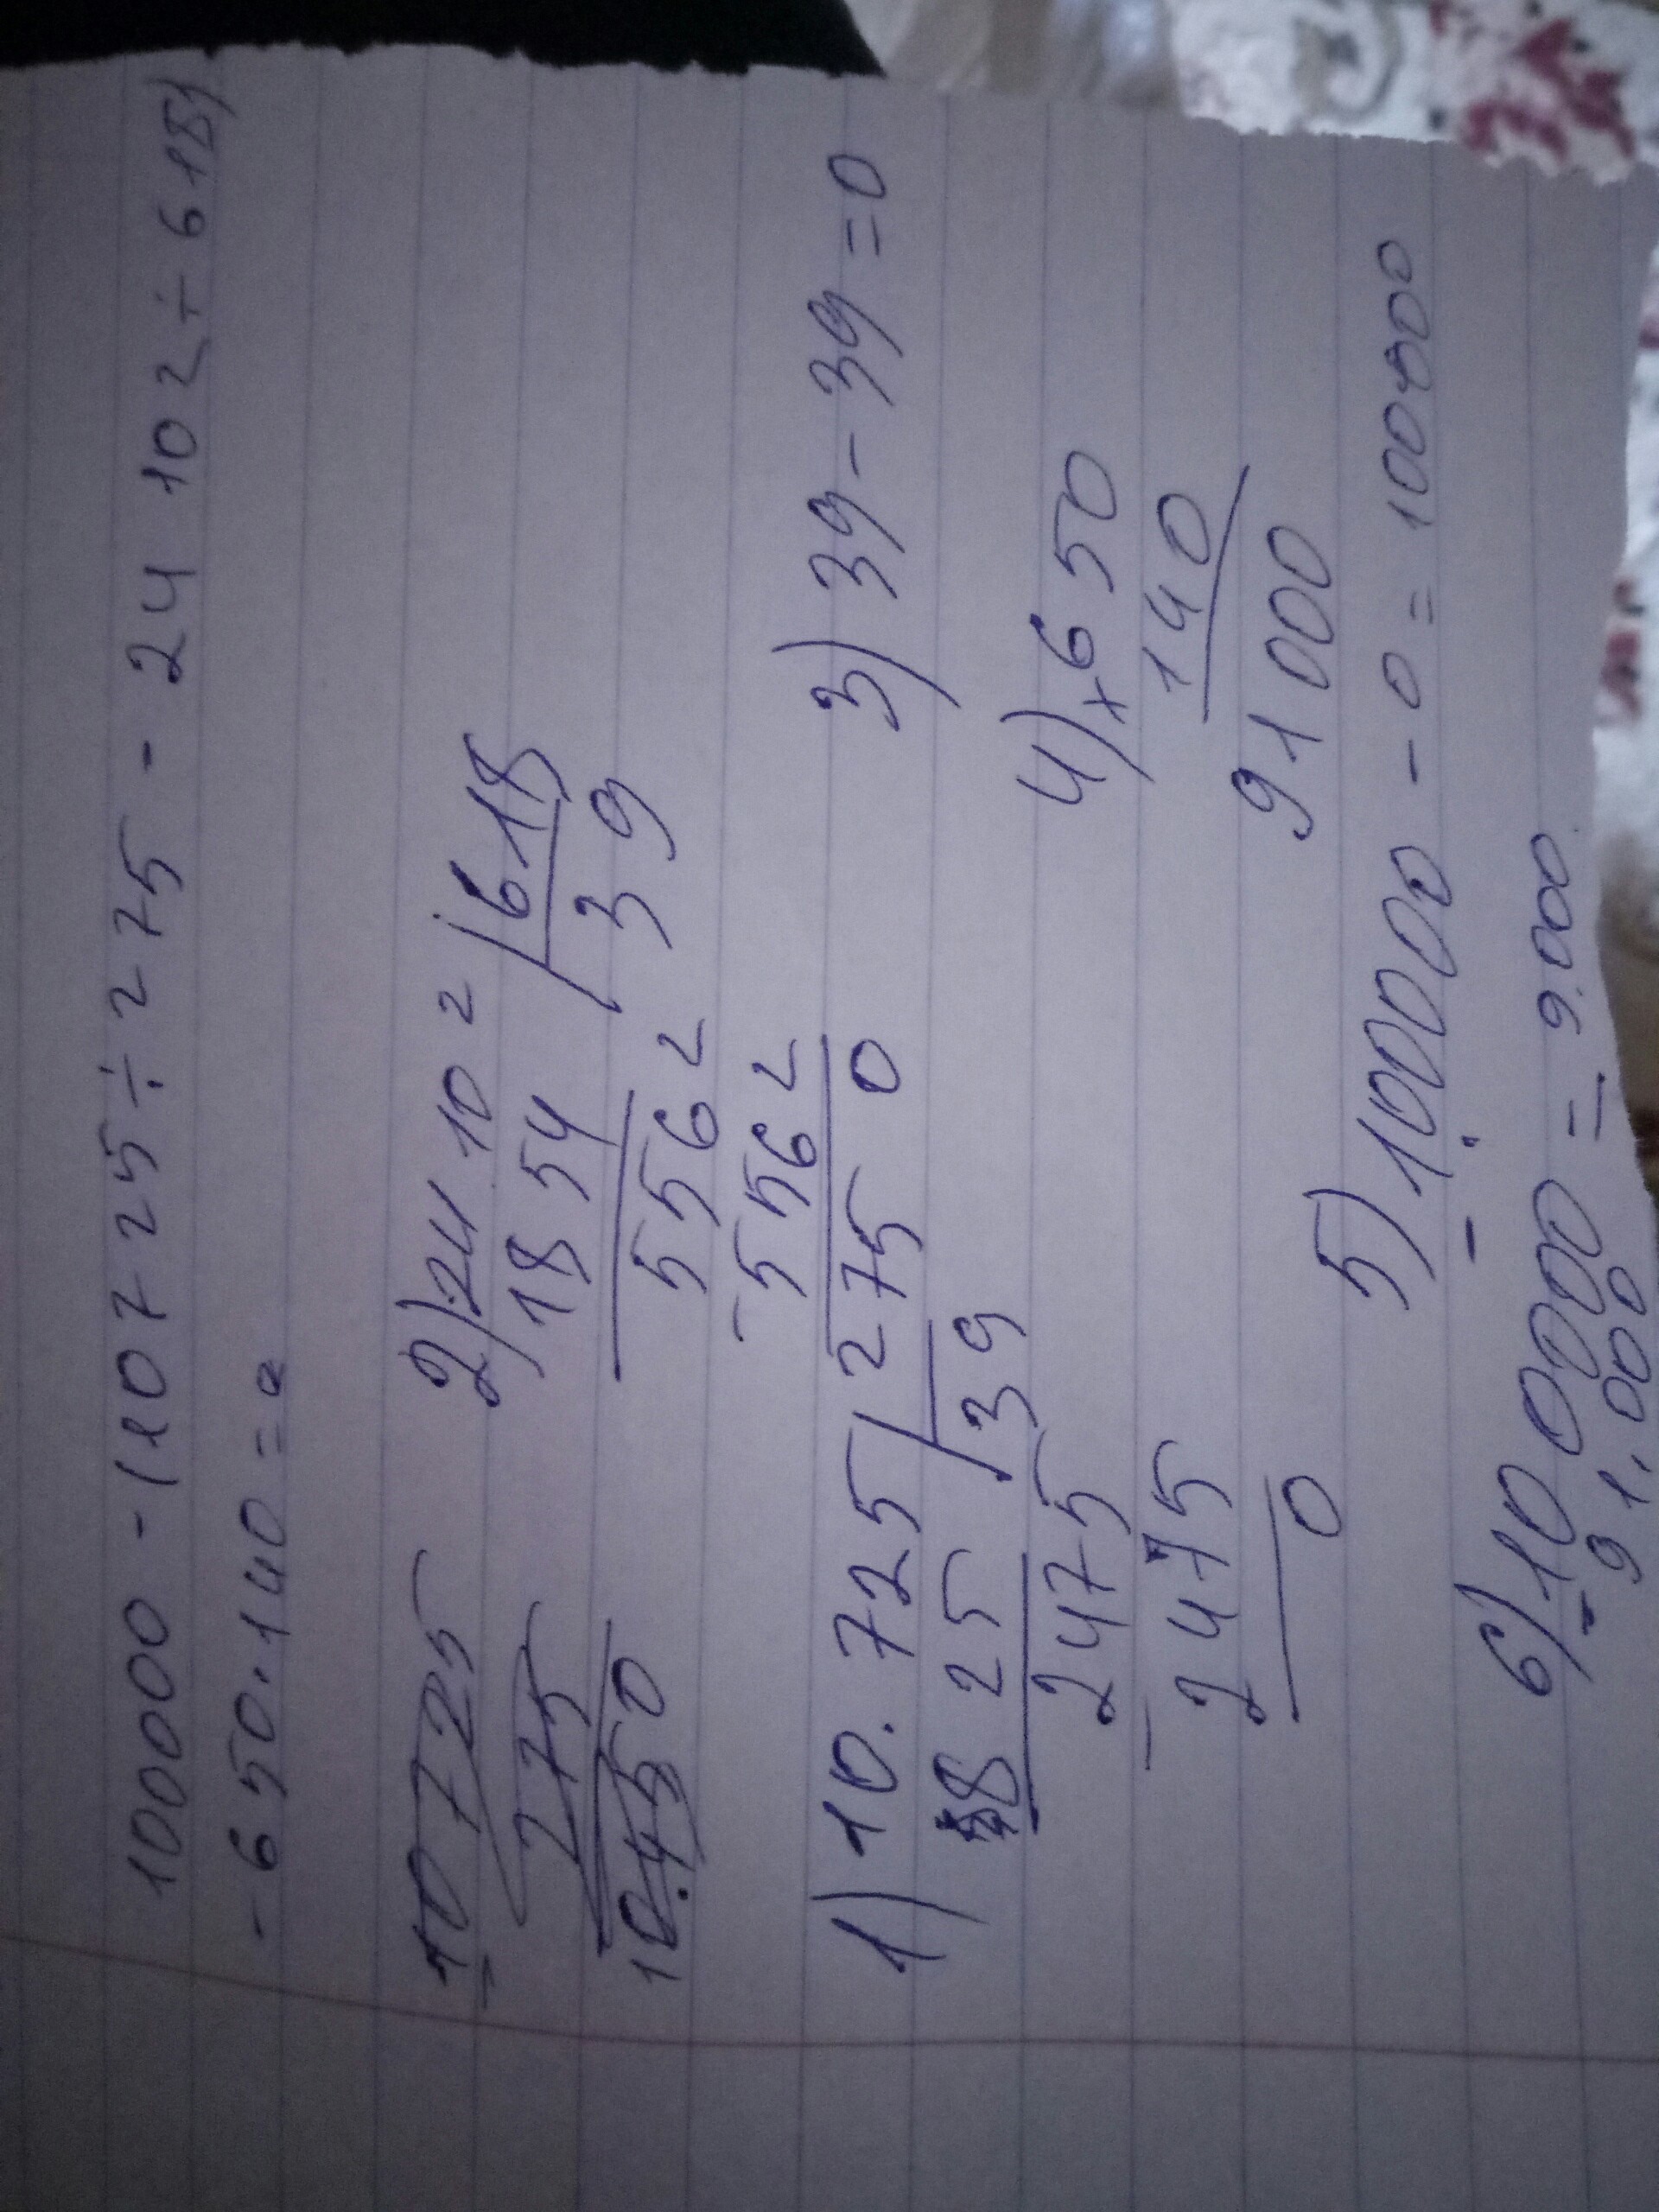 100000 - (10725 ÷ 275 - 24102 ÷ 618)
- 650 · 140 = a
- 10725
275
10.450
2) 24102 | 618
1854
39
5562
- 5562
0
1) 10.725 | 275
825
39
2475
- 2475
0
3) 39 - 39 = 0
4) x 650
140
91000
5) 100000 - 0 = 100000
6) 100000 = 9.000
- 91.000